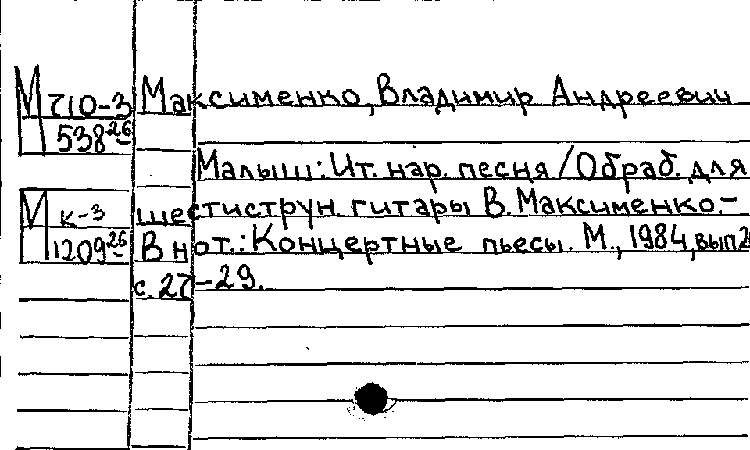 М 710-3 Максименко, Владимир Андреевич
538 26-
Малыш: Ит. нар. песня / Обраб. для
М к-3 шестиструн. гитары В. Максименко.-
1209 26- В нот.: Концертные пьесы. М., 1984, вып 2
с. 27-29.